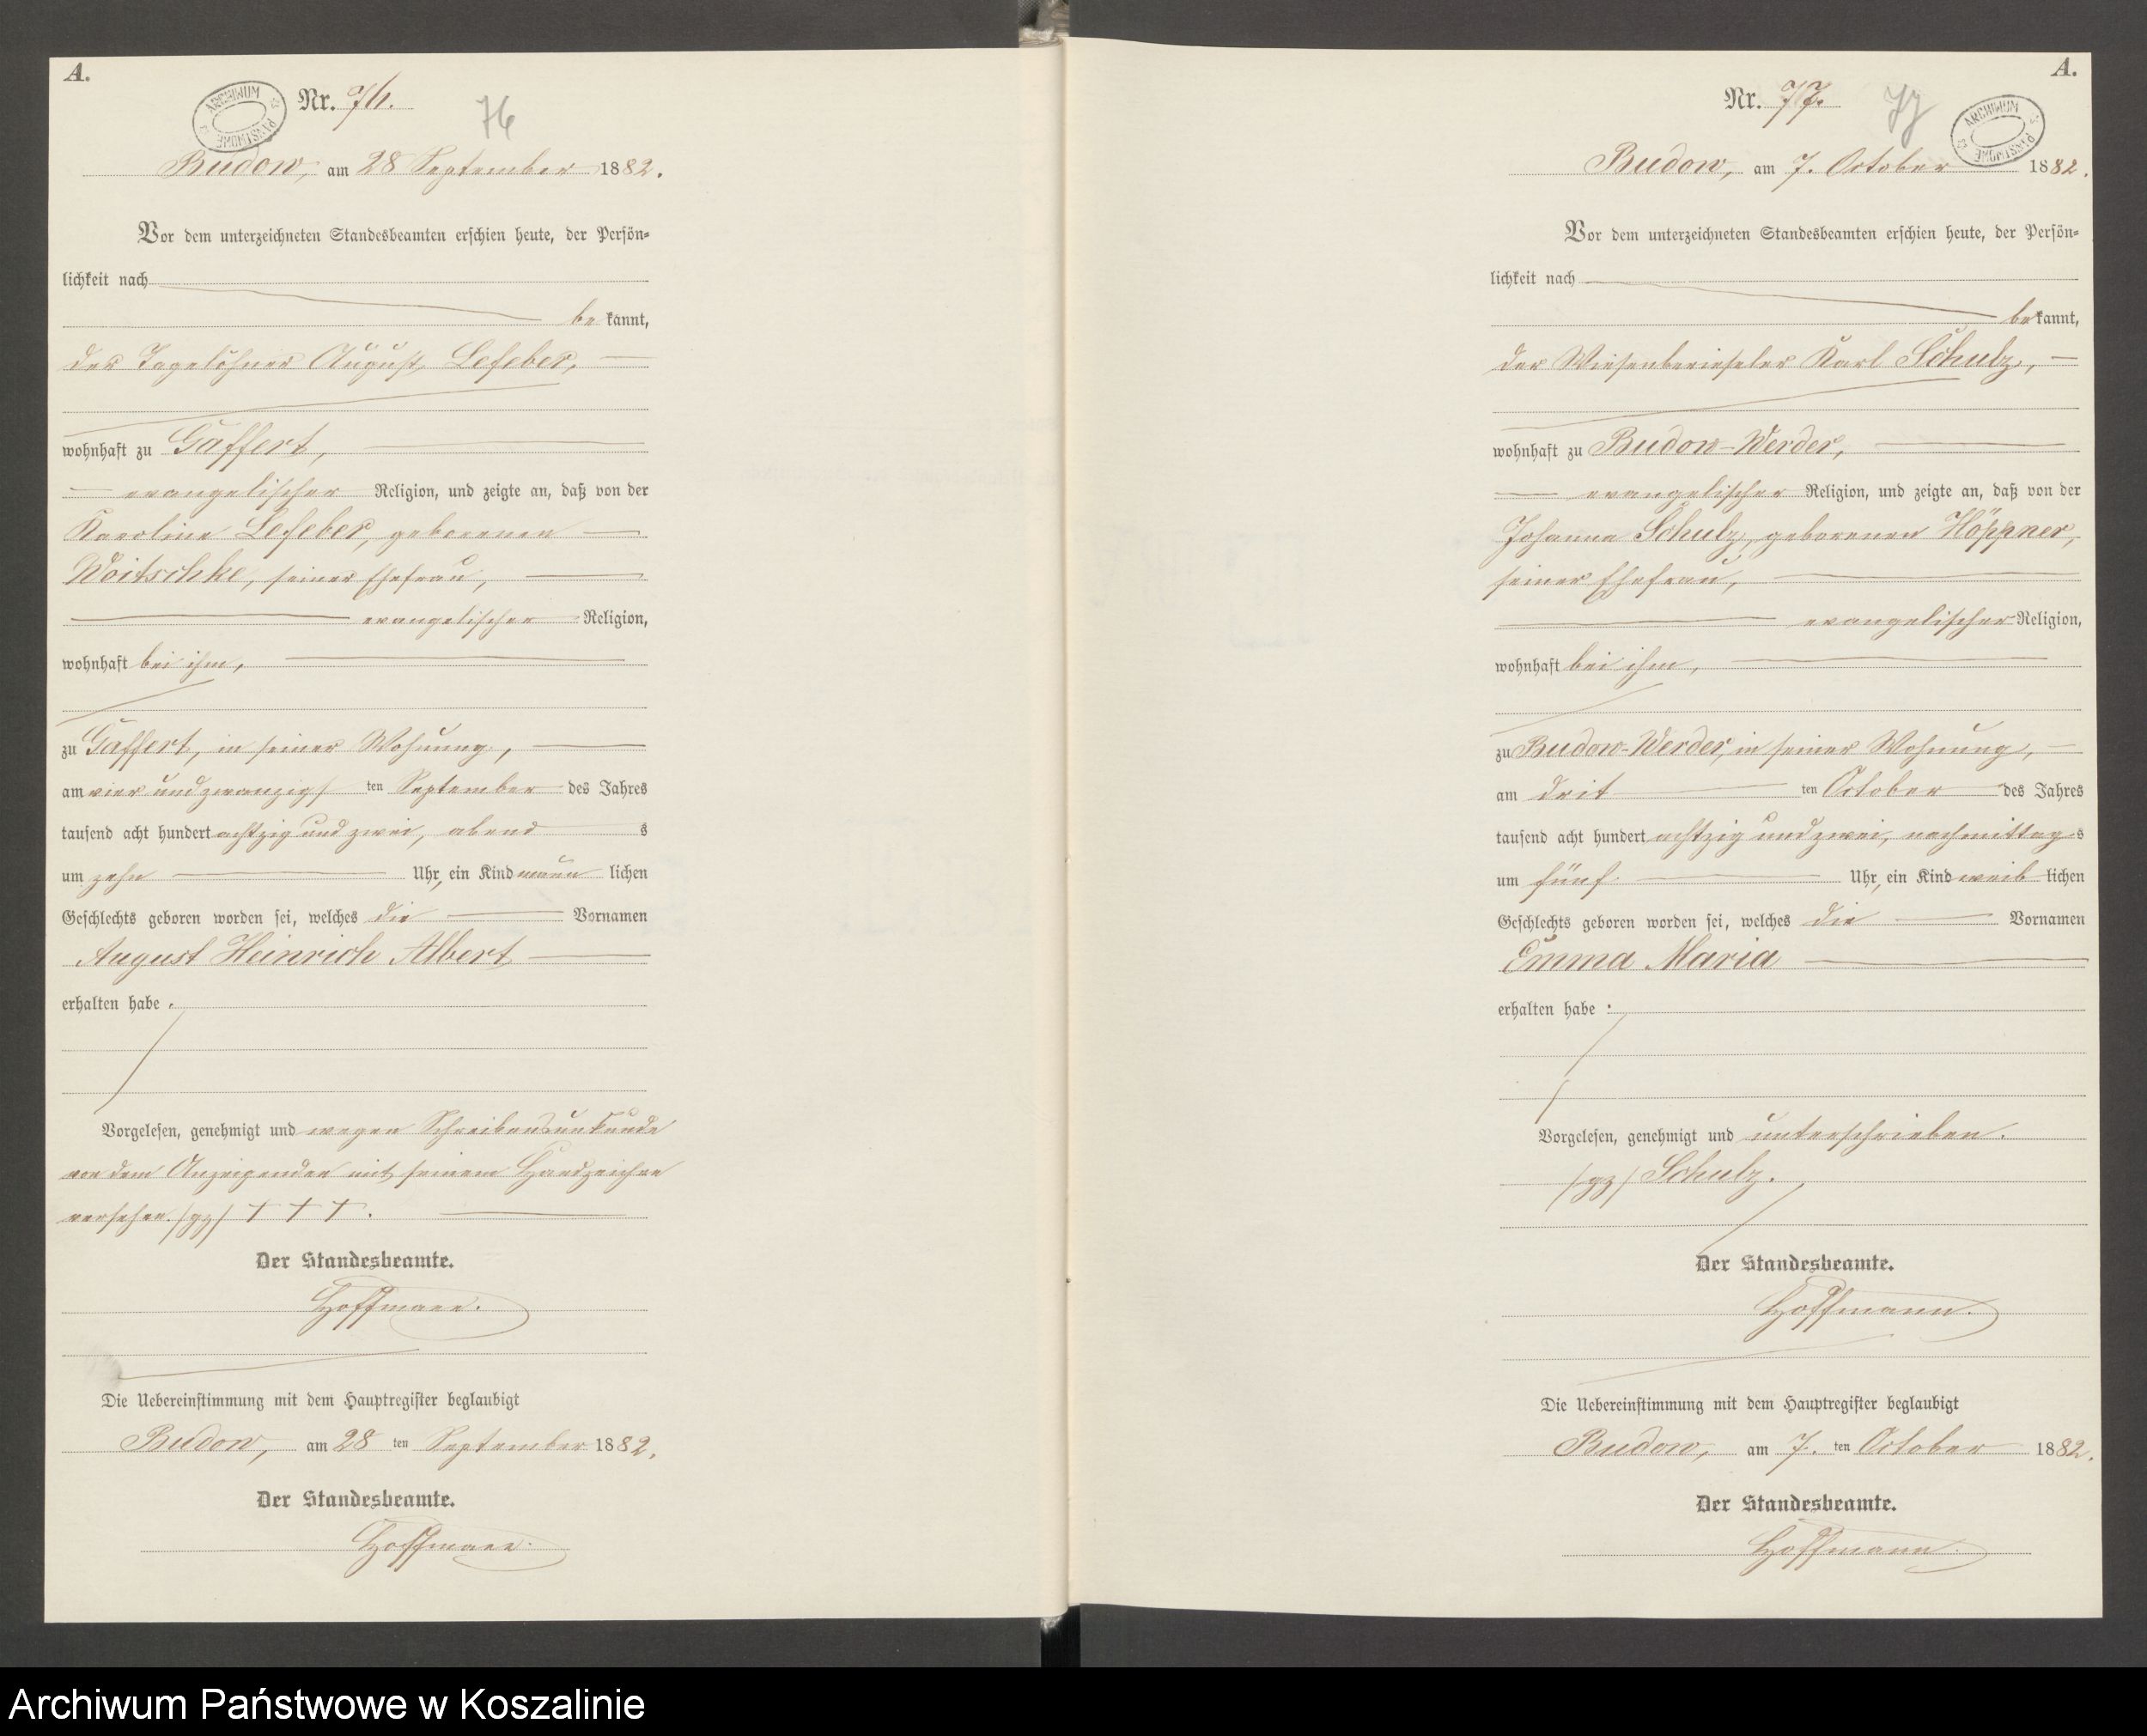 A.
ARCHIWUM PAŃSTWOWE
Nr. 76.
76
Budow, am 28 September 1882.
Vor dem unterzeichneten Standesbeamten erschien heute, der Persön-
lichkeit nach
be kannt,
der Tagelöhner August Lefeber,
wohnhaft zu Gaffert,
evangelischer Religion, und zeigte an, daß von der
Karoline Lefeber, geborenen
Woitschke, seiner Ehefrau,
evangelischer Religion,
wohnhaft bei ihm,
zu Gaffert, in seiner Wohnung,
am vier und zwanzigs ten September des Jahres
tausend acht hundert achtzig und zwei, abend s
um zehn Uhr, ein Kind männ lichen
Geschlechts geboren worden sei, welches die Vornamen
August Heinrich Albert
erhalten habe.
Vorgelesen, genehmigt und wegen Schreibensunkunde
von dem Anzeigenden mit seinem Handzeichen
versehen. (gz) + + +.
Der Standesbeamte.
Hoffmann.
Die Uebereinstimmung mit dem Hauptregister beglaubigt
Budow, am 28 ten September 1882.
Der Standesbeamte.
Hoffmann.
A.
Nr. 77.
77
ARCHIWUM PAŃSTWOWE
Budow, am 7. October 1882.
Vor dem unterzeichneten Standesbeamten erschien heute, der Persön-
lichkeit nach
be kannt,
der Wiesenberieseler Karl Schulz,
wohnhaft zu Budow-Werder,
evangelischer Religion, und zeigte an, daß von der
Johanna Schulz, geborenen Höppner,
seiner Ehefrau,
evangelischer Religion,
wohnhaft bei ihm,
zu Budow-Werder, in seiner Wohnung,
am drit ten October des Jahres
tausend acht hundert achtzig und zwei, nachmittag s
um fünf Uhr, ein Kind weib lichen
Geschlechts geboren worden sei, welches die Vornamen
Emma Maria
erhalten habe.
Vorgelesen, genehmigt und unterschrieben.
(gz) Schulz.
Der Standesbeamte.
Hoffmann.
Die Uebereinstimmung mit dem Hauptregister beglaubigt
Budow, am 7. ten October 1882.
Der Standesbeamte.
Hoffmann.
Archiwum Państwowe w Koszalinie